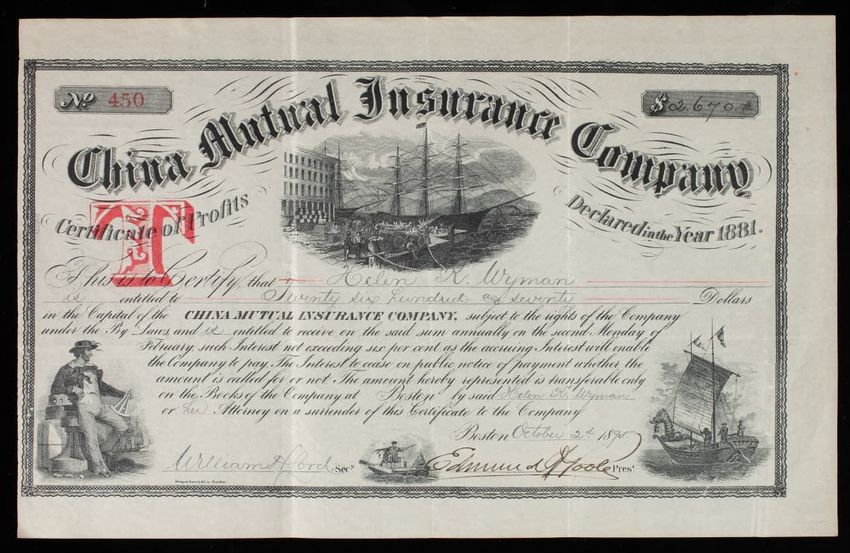 No 450
$ 2,670.
China Mutual Insurance Company
Certificate of Profits
Declared in the Year 1881.
T
This is to Certify, that Helen K. Wyman
is entitled to Twenty six hundred and seventy Dollars
in the Capital of the CHINA MUTUAL INSURANCE COMPANY, subject to the rights of the Company
under the By Laws, and is entitled to receive on the said sum annually on the second Monday of
February, such Interest not exceeding six per cent as the accruing Interest will enable
the Company to pay. The Interest to cease on public notice of payment whether the
amount is called for or not. The amount hereby represented is transferable only
on the Books of the Company at Boston by said Helen K. Wyman
or her Attorney on a surrender of this Certificate to the Company
Boston October 2d
William H. Lord, Secy
Edmund Poole Prest